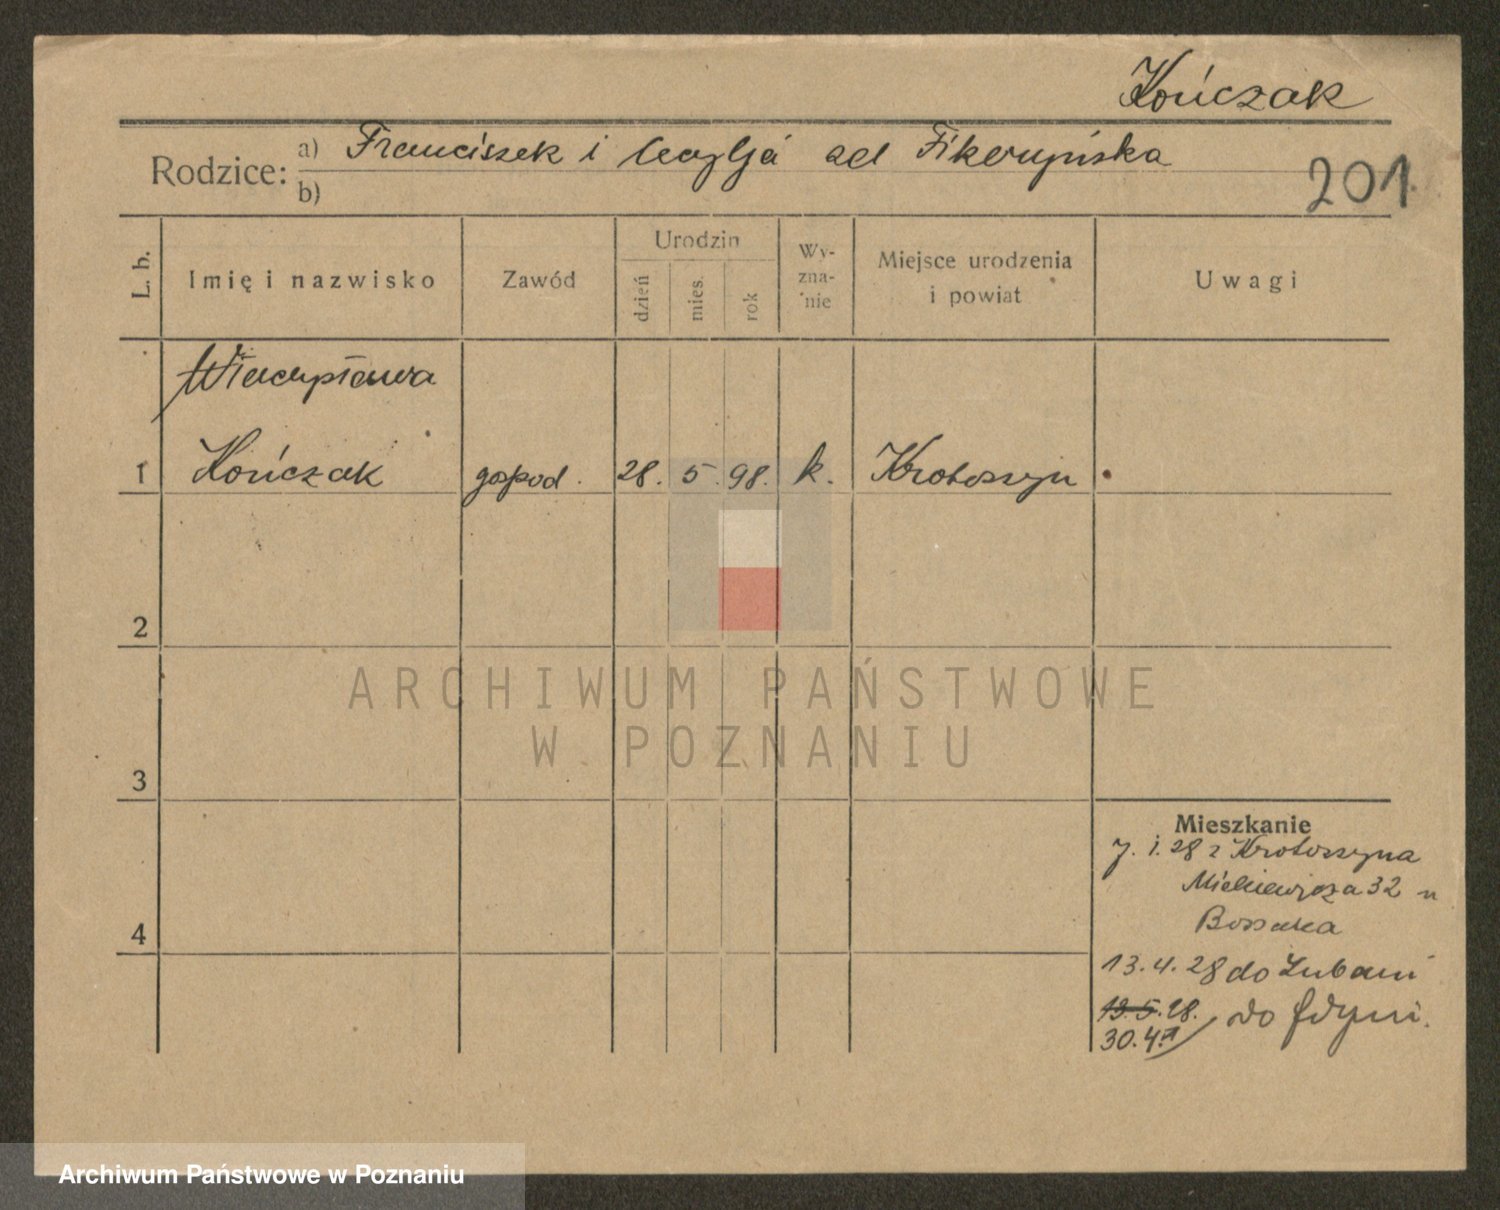 Kończak
Rodzice: a) Franciszek i Cecylja
b)
201
L. b.
Imię i nazwisko
Zawód
Urodzin
dzień
mies.
rok
Wy-
zna-
nie
Miejsce urodzenia
i powiat
Uwagi
Władysława
1 Kończak gospod. 28. 5. 98. k. Krotoszyn
2
ARCHIWUM PAŃSTWOWE
W POZNANIU
3
Mieszkanie
7. 1. 28 z Krotoszyna
Mickiewicza 32 u
4
13. 4. 28 do Lubani
28. do Gdyni.
30. 4.
Archiwum Państwowe w Poznaniu